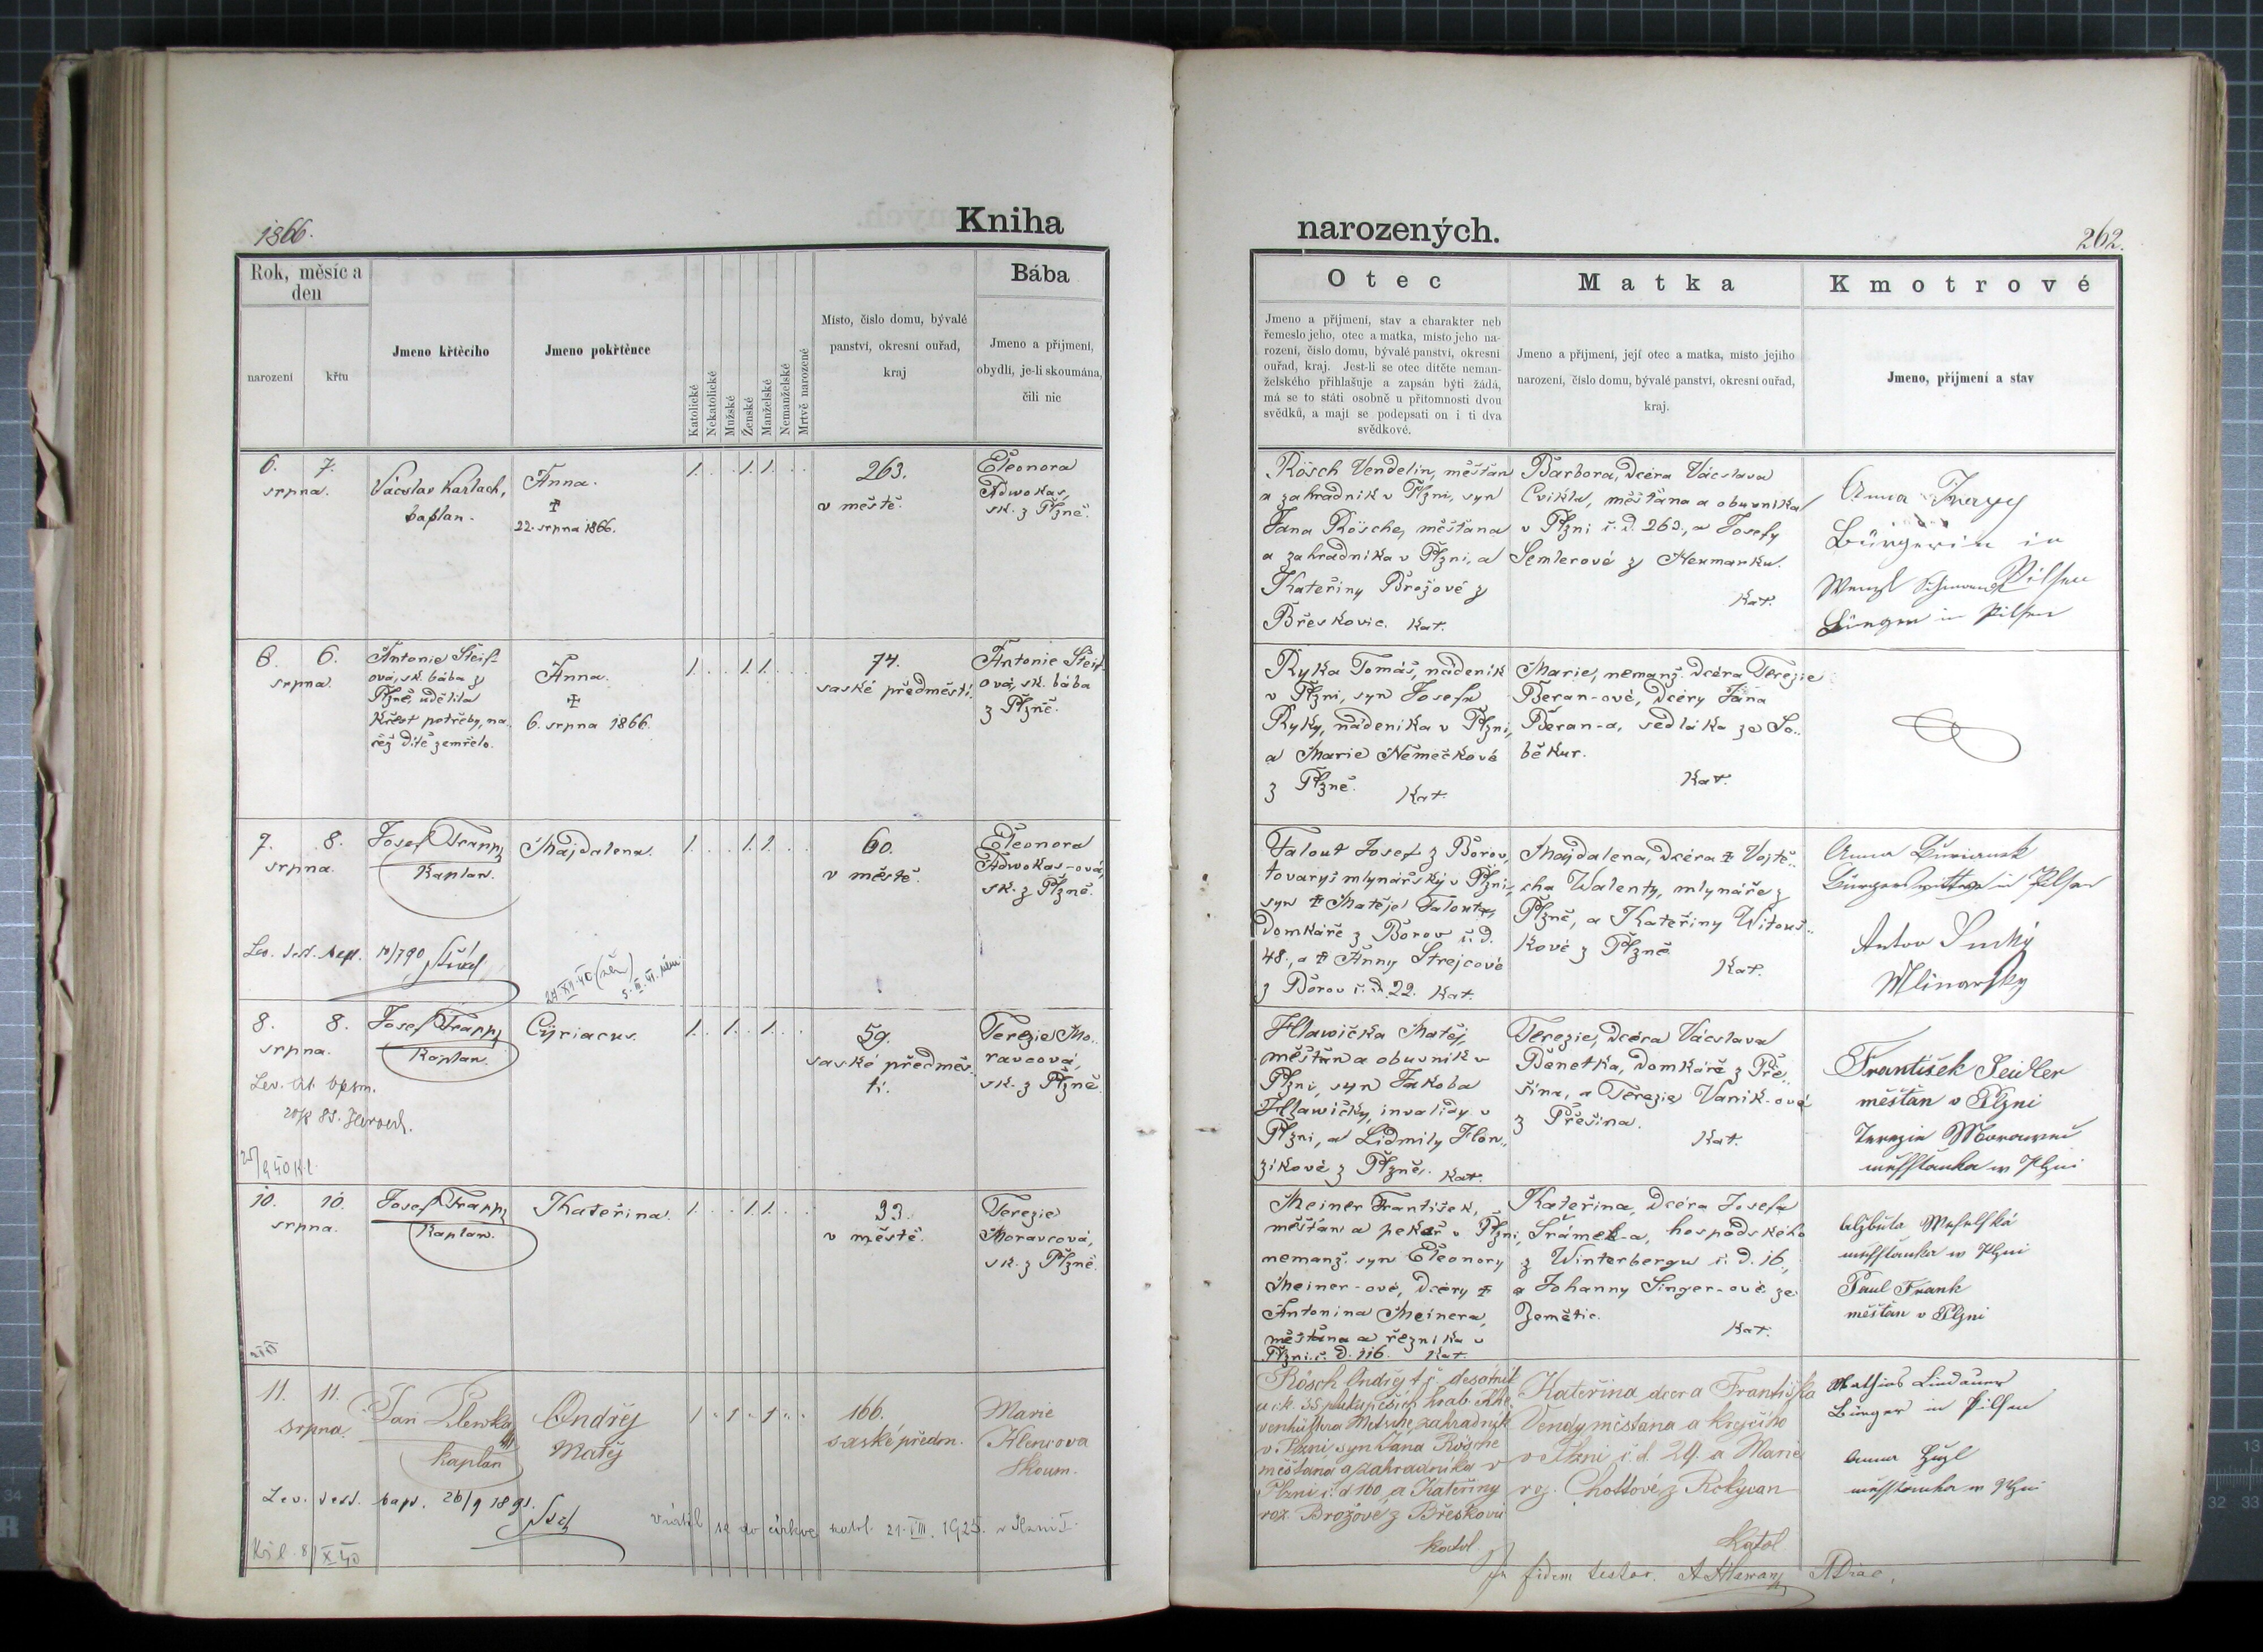 1866.
Kniha
Rok, měsíc a
den
narození
křtu
Jmeno křtěcího
Jmeno pokřtěnce
Katolické
Nekatolické
Mužské
Ženské
Manželské
Nemanželské
Mrtvě narozené
Místo, číslo domu, bývalé
panství, okresní ouřad,
kraj
Bába
Jmeno a příjmení,
obydlí, je-li skoumána,
čili nic
6. 7.
srpna.
Václav Karlach,
kaplan.
Anna.
22. srpna 1866.
1. . . 1. 1. . .
263.
v městě.
Eleonora
Adwokas,
sk. z Plzně.
6. 6.
srpna.
Antonie Steif-
ová, sk. bába z
Plzně, udělila
křest potřeby, na
čež dítě zemřelo.
Anna.
6. srpna 1866.
1. . . 1. 1. . .
74.
saské předměstí.
Antonie Steif-
ová, sk. bába
z Plzně.
7. 8.
srpna.
Josef Trapp
Kaplan.
Majdalena.
1. . . 1. 1. . .
60.
v městě.
Eleonora
Adwokas-ová,
sk. z Plzně.
8. 8.
srpna.
Josef Trapp
Kaplan.
Cyriacus.
1. . 1. . 1. . .
59.
saské předměs-
tí.
Terezie Mo-
ravcová,
sk. z Plzně.
10. 10.
srpna.
Josef Trapp
Kaplan.
Kateřina.
1. . . 1. 1. . .
33.
v městě.
Terezie
Moravcová,
sk. z Plzně.
11. 11.
srpna.
Jan
kaplan
Ondřej
Matěj
1 . 1 . 1 . .
166.
saské předm.
Marie
Skoum.
Lev. test. bapt. 26/9 1891.
vrátil se do církve katol. 21. VIII. 1925. v Plzni I.
narozených.
262.
Otec
Jmeno a příjmení, stav a charakter neb
řemeslo jeho, otec a matka, místo jeho na-
rození, číslo domu, bývalé panství, okresní
ouřad, kraj. Jest-li se otec dítěte neman-
želského přihlašuje a zapsán býti žádá,
má se to státi osobně u přítomnosti dvou
svědků, a mají se podepsati on i ti dva
svědkové.
Matka
Jmeno a příjmení, její otec a matka, místo jejího
narození, číslo domu, bývalé panství, okresní ouřad,
kraj.
Kmotrové
Jmeno, příjmení a stav
Rösch Vendelín, měšťan
a zahradník v Plzni, syn
Jana Rösche, měšťana
a zahradníka v Plzni, a
Kateřiny Brožové z
Břeskovic. Kat.
Barbora, dcéra Václava
Cvikla, měšťana a obuvníka
v Plzni č. d. 263., a Josefy
Semlerové z Neumarku.
Kat.
Anna
Bürgerin in
Pilsen
Wenzl
Bürger in Pilsen
Ryka Tomáš, nádeník
v Plzni, syn Josefa
Ryky, nádeníka v Plzni,
a Marie Němečkové
z Plzně. Kat.
Marie, nemanž. dcéra Terezie
Beran-ové, dcéry Jána
Beran-a, sedláka ze So-
běkur.
Kat.
Falout Josef z Borov,
tovaryš mlynářský v Plzni,
syn Matěje Falouta,
domkáře z Borov č. d.
48., a Anny Strejcové
z Borov č. d. 22. Kat.
Majdalena, dcéra Vojtě-
cha Walenty, mlynáře z
Plzně, a Kateřiny Witouš-
kové z Plzně
Kat.
Anna
in Pilsen
Anton Suchý
Mlinarsky
Hlawička Matěj,
měšťan a obuvník v
Plzni, syn Jakoba
Hlawičky, invalidy v
Plzni, a Lidmily Hon-
zíkové z Plzně. Kat.
Terezie, dcéra Václava
Benetka, domkáře z Pře-
šína, a Terezie Vaník-ové
z Přešína.
Kat.
František Seidler
měšťan v Plzni
Terezie
měsstanka w Plzni
Meiner František,
měšťan a pekař v Plzni,
nemanž. syn Eleonory
Meiner-ové, dcéry
Antonína Meinera,
měšťana a řezníka v
Plzni č. d. 116. Kat.
Kateřina, dcéra Josefa
Šrámek-a, hospodského
z Winterbergu č. d. 16.,
a Johanny Singer-ové ze
Zemětic.
Kat.
Alžběta
měsstanka w Plzni
Paul Frank
měšťan v Plzni
Rösch Ondřej desátník
u c. k. 35 pluku pěších hrab. Khe-
venhüllera Metsche, zahradník
v Plzni syn Jána Rösche
měšťana a zahradníka v
Plzni č. d 160, a Kateřiny
roz. Brožové z Břeskovic
katol.
Kateřina dcera Františka
Vendy měšťana a krejčího
v Plzni č. d. 29. a Marie
roz. Chottové z Rokycan
Katol
Mathias Lindauer
Bürger in Pilsen
Anna
měsstanka w Plzni
In fidem testor.